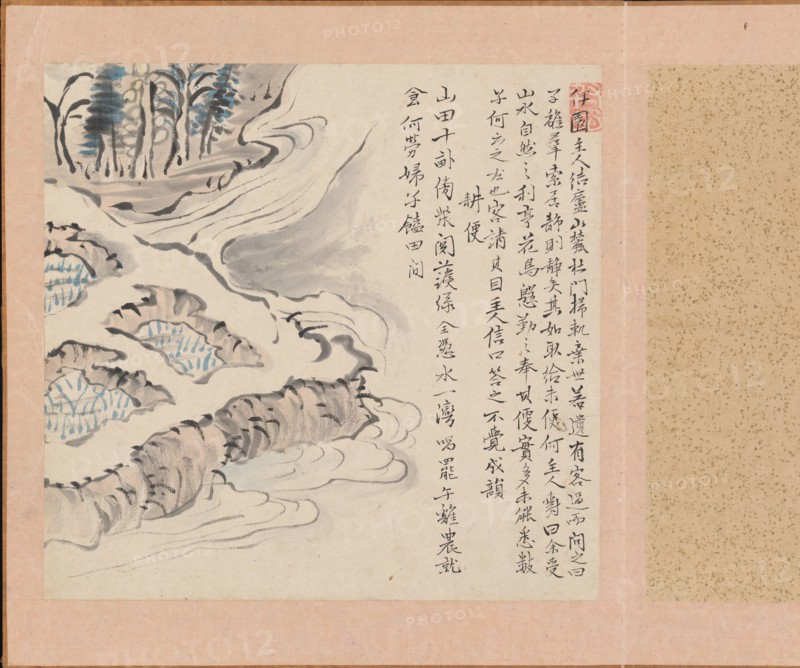 伊園主人結廬山麓杜門掃軌棄世若遺有客過而問之曰
子離羣索居靜則靜矣其如取給未便何主人對曰余受
山水自然之利享花鳥慇勤之奉其便實多未能悉數
子何云之左也客請其目主人信口答之不覺成韻
耕便
山田十畝傍柴関護綠全憑水一灣唱罷午雞農就
食何勞婦子饁田間
PHOTO12